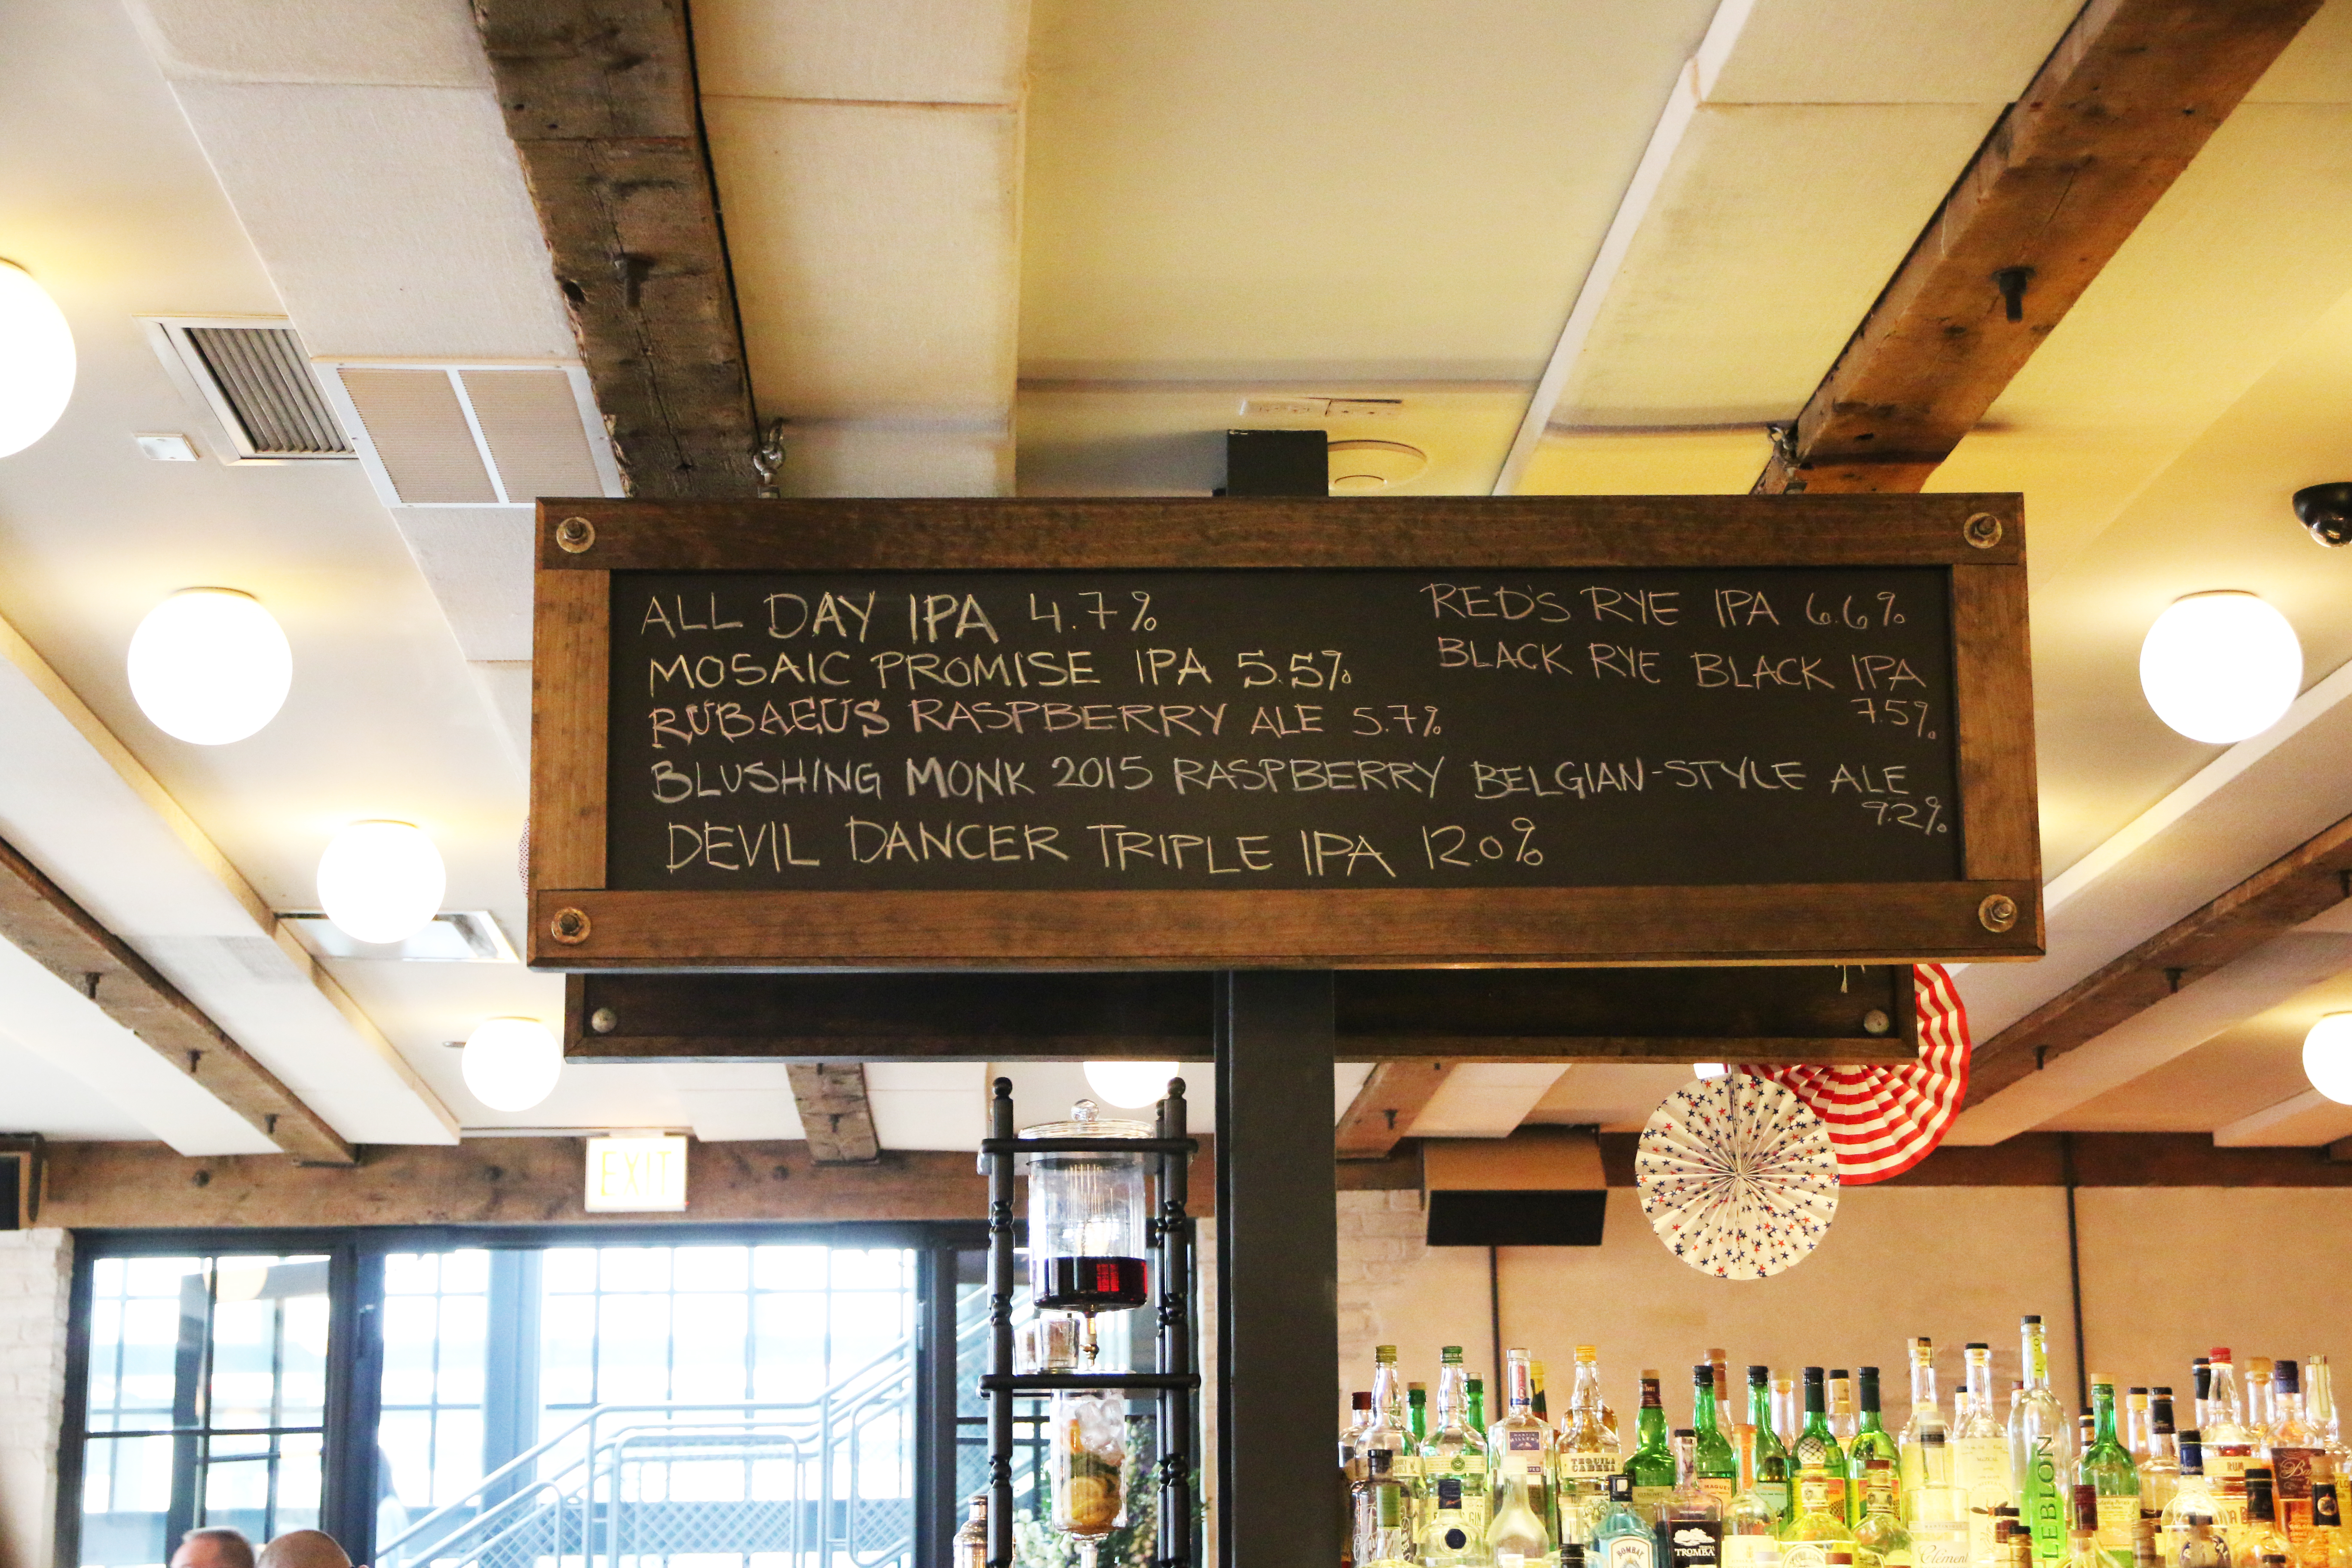 ALL DAY IPA 4.7%
MOSAIC PROMISE IPA 5.5%
RUBAEUS RASPBERRY ALE 5.7%
RED'S RYE IPA 6.6%
BLACK RYE BLACK IPA
7.5%
BLUSHING MONK 2015 RASPBERRY BELGIAN-STYLE ALE
9.2%
DEVIL DANCER TRIPLE IPA 12.0%
EXIT
TEQUILA
CABEZA
LEBLON
RUM
GIN
BOMBAY
TROMBA
Clément